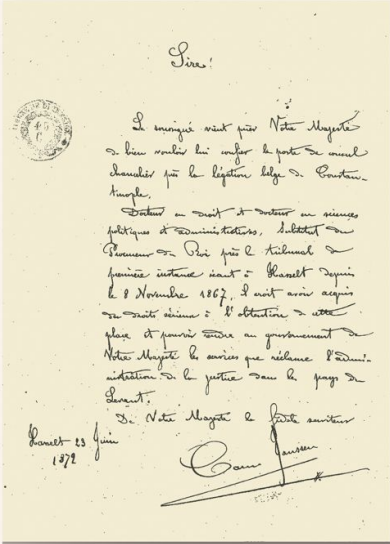 Sire!
45
C
Le soussigné vient prier Votre Majesté
de bien vouloir lui confier le poste de consul
chancelier près la légation belge de Constan-
tinople.
Docteur en droit et docteur en sciences
politiques et administratives, Substitut du
Procureur du Roi près le tribunal de
première instance séant à Hasselt depuis
le 8 Novembre 1867, il croit avoir acquis
des droits sérieux à l'obtention de cette
place et pouvoir rendre au gouvernement de
Votre Majesté les services que réclame l'admi-
nistration de la justice dans les pays du
Levant.
De Votre Majesté le fidèle serviteur
Hasselt 23 Juin
1872
Janssen